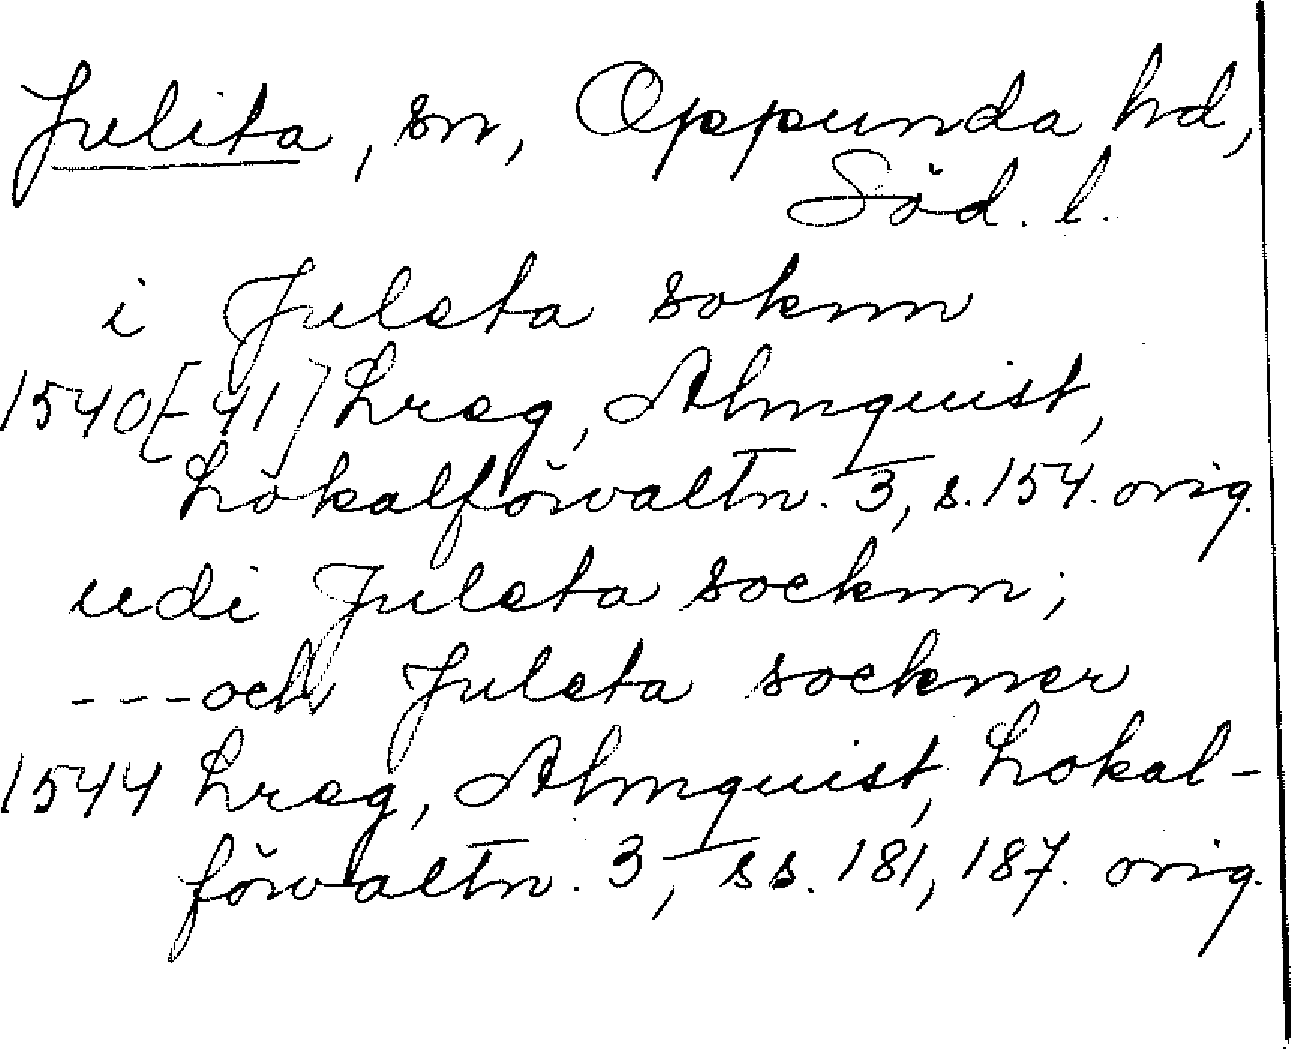 Julita, sn, Oppunda hd,
Söd. l.
i Juleta soknn
1540[-41] Lreg, Almquist,
Lokalförvaltn. 3, s. 154. orig.
udi Juleta socknn;
---och Juleta sockner
1544 Lreg, Almquist, Lokal-
förvaltn. 3, ss. 181, 187. orig.